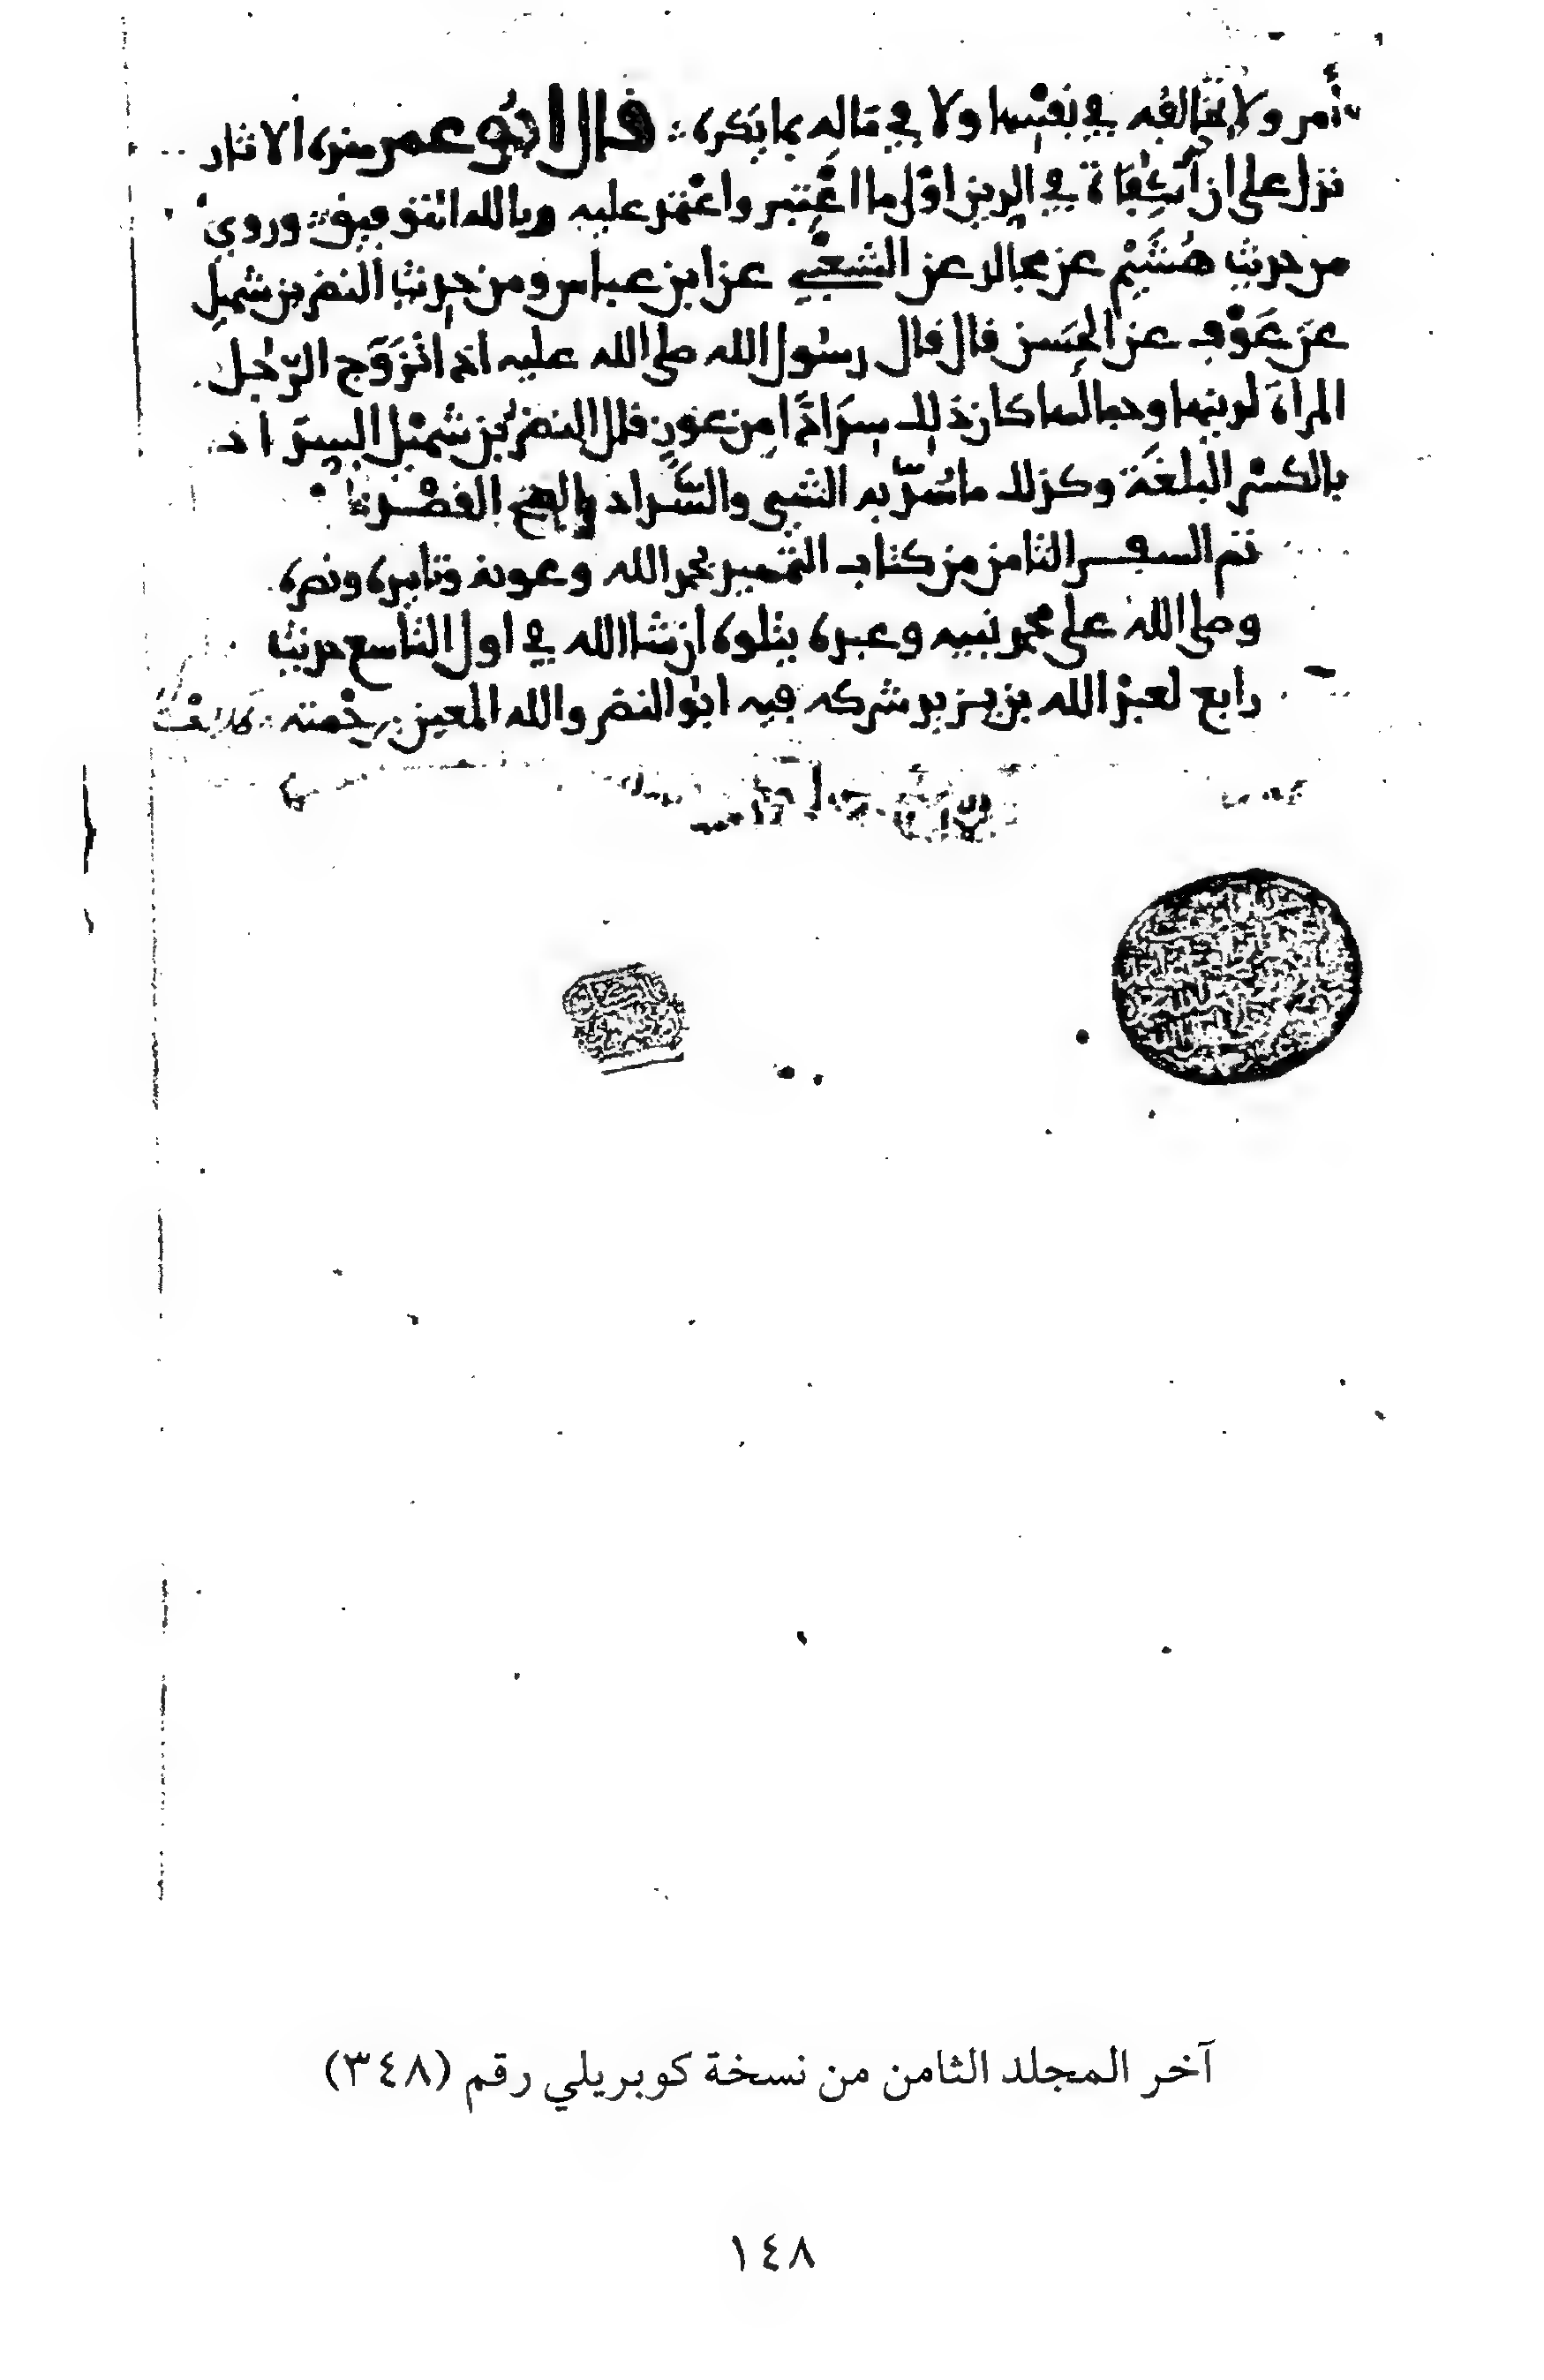 أمر ولا تخالفه في نفسها ولا في ماله بما يكره قال ابو عمر هذه الاثار
تدل على ان الكفاءة في الدين اولى ما اعتبر واعتمد عليه وبالله التوفيق وروي
من حديث هُشَيْم عن مجالد عن الشعبي عن ابن عباس ومن حديث النضر بن شميل
عن عَوْف عن الحسن قال قال رسول الله صلى الله عليه اذا تَزَوَّج الرّجل
المراة لدينها وجمالها كان ذلك سِدَادًا من عوز قال النضر بن شميل السداد
بالكسر البلغة وكذلك ما سُدّ به الشيء والسَّداد بالفتح القصد
تم السفر الثامن من كتاب التمهيد بحمد الله وعونه وتاييده ونصره
وصلى الله على محمد نبيه وعبده يتلوه ان شا الله في اول التاسع حديث
رابع لعبد الله بن يزيد شركه فيه ابو النضر والله المعين برحمته
آخر المجلد الثامن من نسخة كوبريلي رقم (٣٤٨)
١٤٨